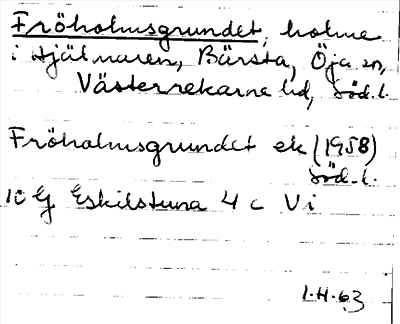 Fröholmsgrundet, holme
i Hjälmaren, Bärsta, Öja sn,
Västerrekarne hd, Söd. l.
Fröholmsgrundet ek (1958)
Söd. l.
10 G Eskilstuna 4 c Vi
1.H.63